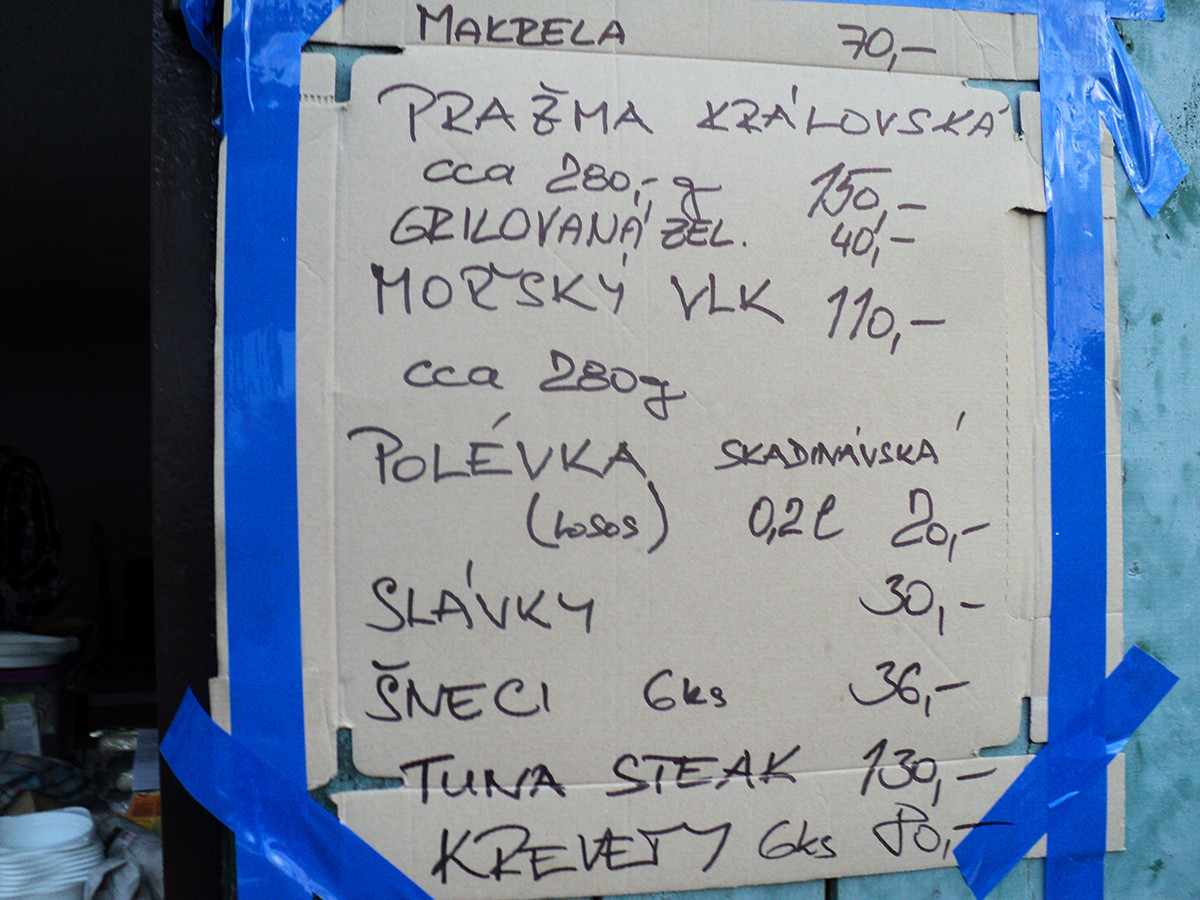 MAKRELA 70,-
PRAŽMA KRÁLOVSKÁ
cca 280,- g 150,-
GRILOVANÁ ZEL. 40,-
MOŘSKÝ VLK 110,-
cca 280g
POLÉVKA SKADINÁVSKÁ
(LOSOS) 0,2l 20,-
SLÁVKY 30,-
ŠNECI 6ks 36,-
TUNA STEAK 130,-
KREVETY 6ks 80,-